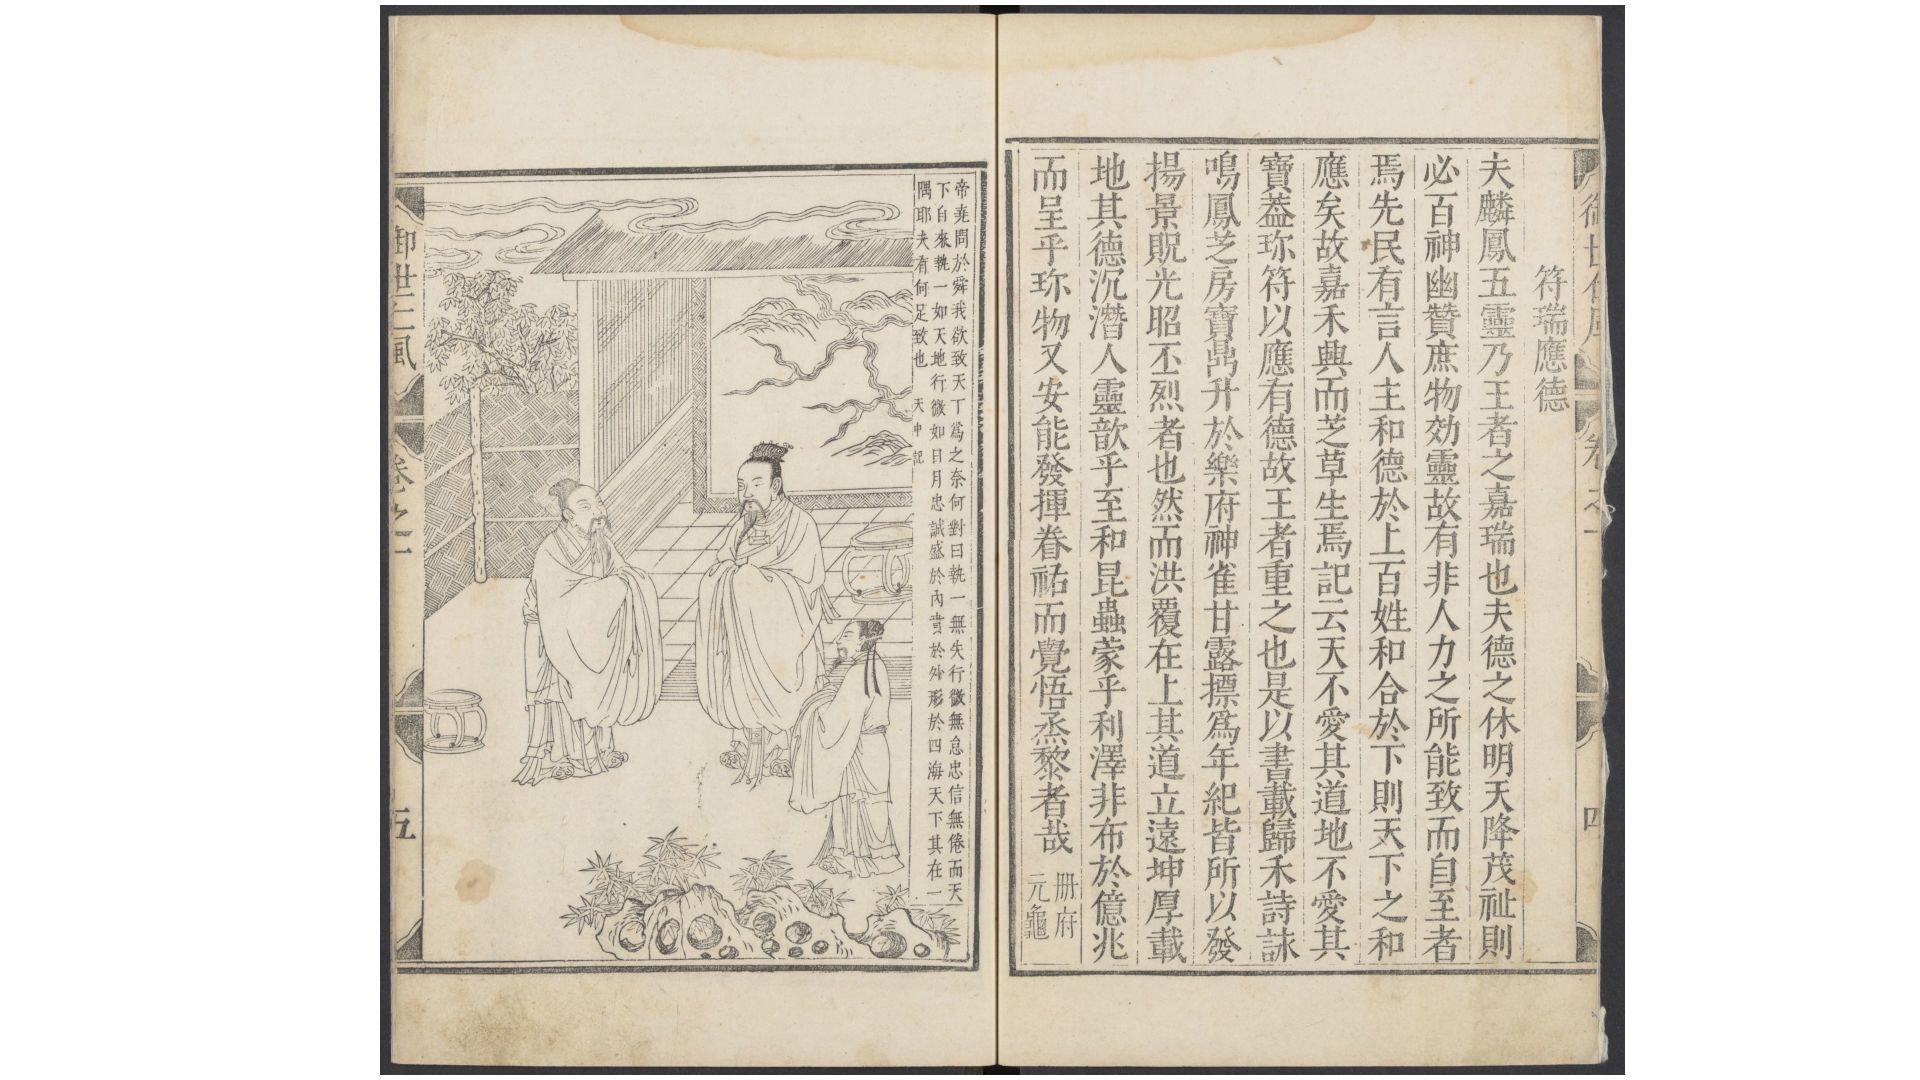 御世仁風 卷之一 四
符瑞應德
夫麟鳳五靈乃王者之嘉瑞也夫德之休明天降茂祉則
必百神幽贊庶物効靈故有非人力之所能致而自至者
焉先民有言人主和德於上百姓和合於下則天下之和
應矣故嘉禾興而芝草生焉記云天不愛其道地不愛其
寶葢珎符以應有德故王者重之也是以書載歸禾詩詠
鳴鳳芝房寶鼎升於樂府神雀甘露摽爲年紀皆所以發
揚景貺光昭丕烈者也然而洪覆在上其道立遠坤厚載
地其德沉潛人靈歆乎至和昆蟲蒙乎利澤非布於億兆
而呈乎珎物又安能發揮眷祐而覺悟烝黎者哉
册府
元龜
帝堯問於舜我欲致天丁爲之奈何對曰執一無失行微無怠忠信無倦而天
下自來執一如天地行微如日月忠誠盛於內賁於外形於四海天下其在一
隅耶夫有何足致也 天中記
御世仁風 卷之一 五